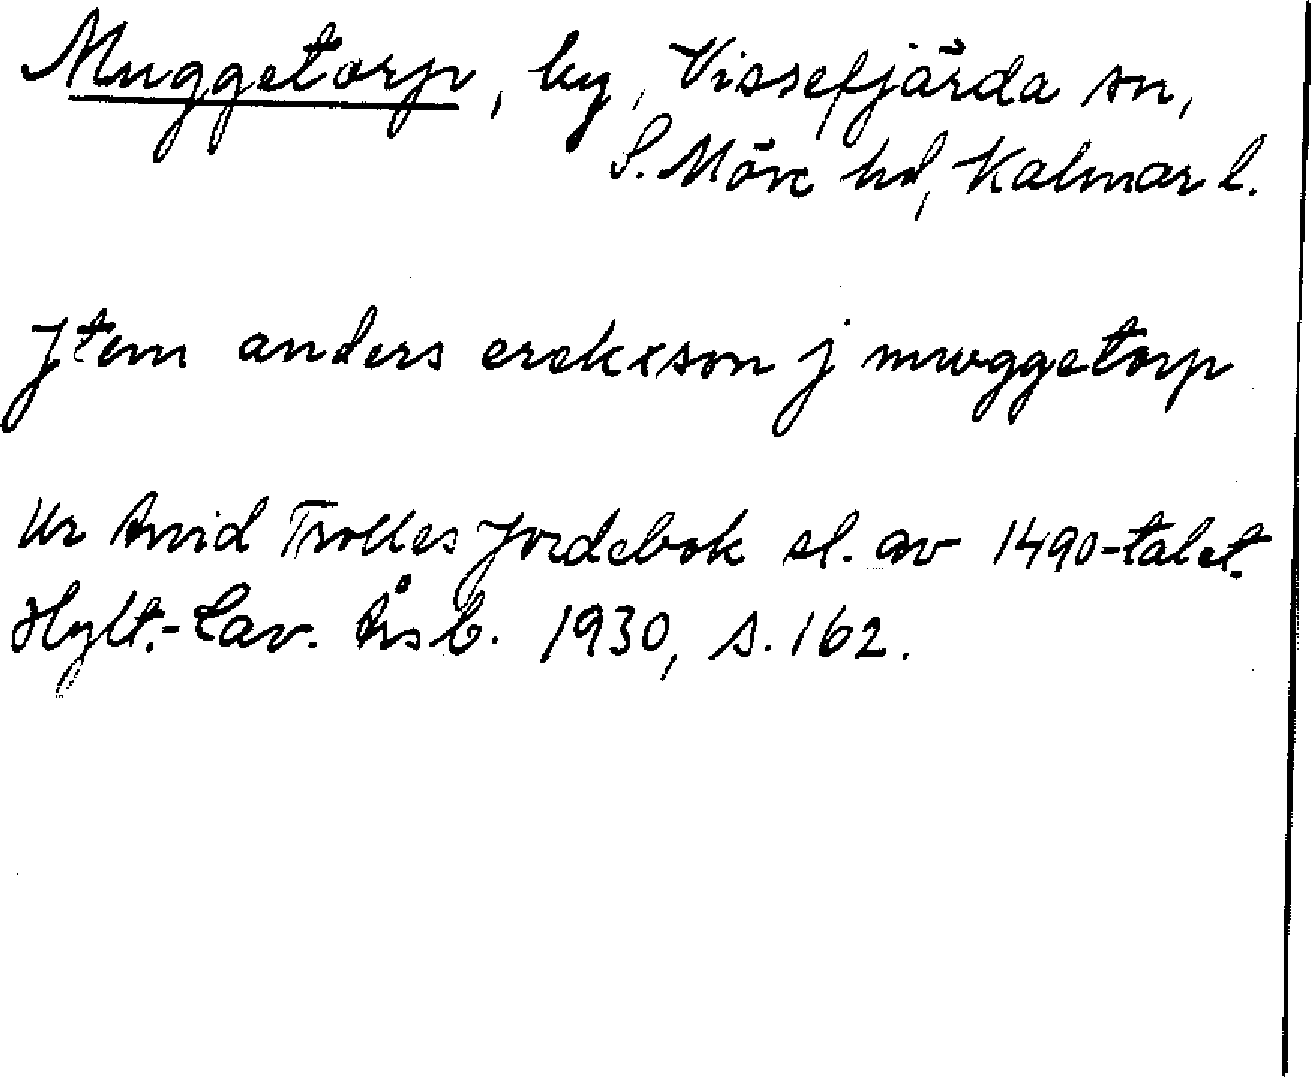 Muggetorp, by, Vissefjärda sn,
S. Möre hd, Kalmar l.
Jtem anders erekxson j mwggetorp
Ur Arvid Trolles Jordebok sl. av 1490-talet.
Hylt.-Cav. Årsb. 1930, s. 162.